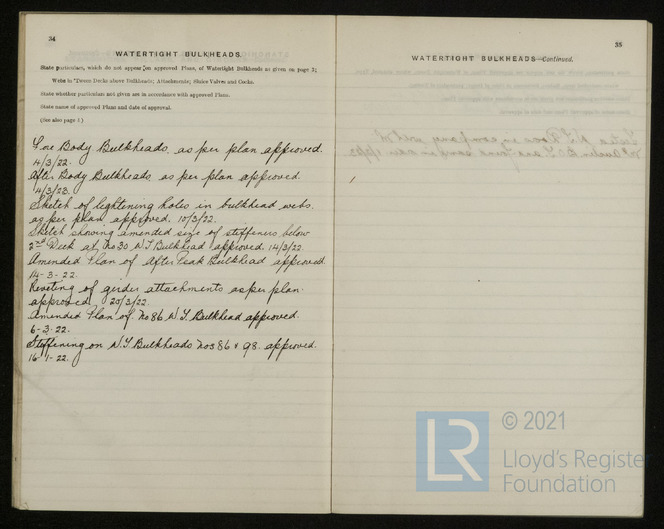 34
WATERTIGHT BULKHEADS.
State particulars, which do not appear on approved Plans, of Watertight Bulkheads as given on page 3;
Webs in 'Tween Decks above Bulkheads; Attachments; Sluice Valves and Cocks.
State whether particulars not given are in accordance with approved Plans.
State name of approved Plans and date of approval.
(See also page 4.)
Fore Body Bulkheads as per plan approved.
14/3/22.
After Body Bulkheads as per plan approved
14/3/22.
Sketch of lightening holes in bulkhead webs.
as per plan approved. 10/3/22.
Sketch showing amended size of stiffeners below
2nd Deck at No 30 W T Bulkhead approved. 14/3/22
Amended Plan of After Peak Bulkhead approved.
14-3-22.
Riveting of girder attachments as per plan
approved. 20/3/22.
Amended Plan of No 86 W T. Bulkhead approved.
6-3-22.
Stiffening on W T Bulkheads Nos 86 & 98. approved.
16-1-22.
35
WATERTIGHT BULKHEADS—Continued.
© 2021
LR
Lloyd's Register
Foundation